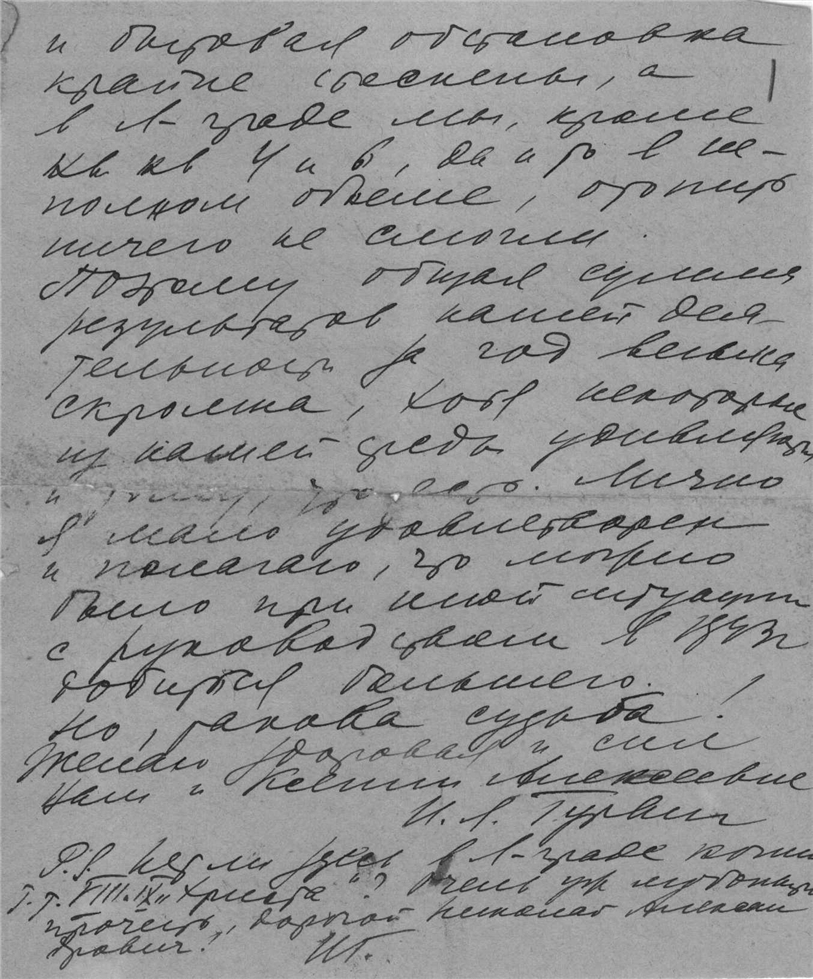 и бытовая обстановка
крайне стеснены, а
в Л-граде мы, кроме
кв. кв 4 и 6, да и то в не-
полном объеме, отопить
ничего не смогли.
Поэтому общая сумма
результатов нашей дея-
тельности за год весьма
скромна, хотя некоторые
из нашей среды удивляются
и тому, что есть. Лично
я мало удовлетворен
и полагаю, что можно
было при иной ситуации
с руководством в 1943г
добиться большего.
Но, такова судьба!
Желаю здоровья и сил
Вам и Ксении Алексеевне
И. Л. Гурвич
P.S. Нет ли здесь в Л-граде копии
Т.Т. VIII. IX „Христа"? Очень уж любопытно
прочесть, дорогой Николай Алексан
дрович!
ИГ.